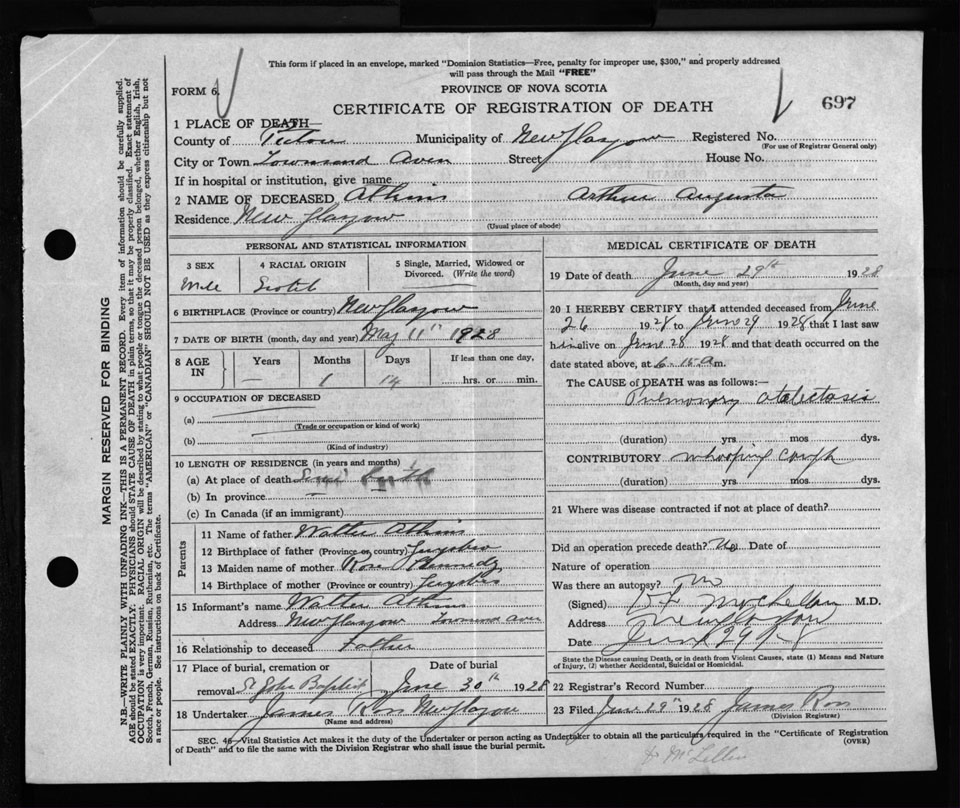 This form if placed in an envelope, marked "Dominion Statistics—Free, penalty for improper use, $300," and properly addressed
will pass through the Mail "FREE"
FORM 6.
PROVINCE OF NOVA SCOTIA
CERTIFICATE OF REGISTRATION OF DEATH
697
1 PLACE OF DEATH—
County of Pictou Municipality of New Glasgow Registered No.
(For use of Registrar General only)
City or Town Townsend Aven Street House No.
If in hospital or institution, give name
2 NAME OF DECEASED Atkins Arthur Augusta
Residence New Glasgow
(Usual place of abode)
PERSONAL AND STATISTICAL INFORMATION
3 SEX
Male
4 RACIAL ORIGIN
Scotch
5 Single, Married, Widowed or
Divorced. (Write the word)
6 BIRTHPLACE (Province or country) New Glasgow
7 DATE OF BIRTH (month, day and year) May 11th 1928
8 AGE
IN
Years
—
Months
1
Days
14
If less than one day,
hrs. or min.
9 OCCUPATION OF DECEASED
(a)
(Trade or occupation or kind of work)
(b)
(Kind of industry)
10 LENGTH OF RESIDENCE (in years and months)
(a) At place of death
(b) In province —
(c) In Canada (if an immigrant)
Parents
11 Name of father Walter Atkins
12 Birthplace of father (Province or country) Guysbro
13 Maiden name of mother Rose Kennedy
14 Birthplace of mother (Province or country) Guysbro
15 Informant's name Walter Atkins
Address New Glasgow Townsend Aven
16 Relationship to deceased Father
17 Place of burial, cremation or
removal St John Baptist
Date of burial
June 30th 1928
18 Undertaker James Ross New Glasgow
(Name and address)
MEDICAL CERTIFICATE OF DEATH
19 Date of death June 29th 1928
(Month, day and year)
20 I HEREBY CERTIFY that I attended deceased from June
26 1928 to June 29 1928 that I last saw
him alive on June 28 1928 and that death occurred on the
date stated above, at 6.15 a m.
The CAUSE of DEATH was as follows:—
Pulmonary atalectasis
(duration) yrs. mos dys.
CONTRIBUTORY whooping cough
(duration) yrs. mos. dys.
21 Where was disease contracted if not at place of death?
Did an operation precede death? No Date of
Nature of operation
Was there an autopsy? no
(Signed) McLellan M.D.
Address New Glasgow
Date June 29/28
State the Disease causing Death, or in death from Violent Causes, state (1) Means and Nature
of Injury, (2) whether Accidental, Suicidal or Homicidal.
22 Registrar's Record Number
23 Filed June 29th 1928 James Ross
(Division Registrar)
SEC. 46—Vital Statistics Act makes it the duty of the Undertaker or person acting as Undertaker to obtain all the particulars required in the "Certificate of Registration
of Death" and to file the same with the Division Registrar who shall issue the burial permit.
(OVER)
Dr McLellan
MARGIN RESERVED FOR BINDING
N.B—WRITE PLAINLY WITH UNFADING INK—THIS IS A PERMANENT RECORD. Every item of information should be carefully supplied.
AGE should be stated EXACTLY. PHYSICIANS should STATE CAUSE OF DEATH in plain terms, so that it may be properly classified. Exact statement of
OCCUPATION is very important. RACIAL ORIGIN will be described by stating to what people or tongue the deceased person belonged, whether English, Irish,
Scotch, French, German, Russian, Ruthenian, etc. The terms "AMERICAN" or "CANADIAN" SHOULD NOT BE USED as they express citizenship but not
a race or people. See instructions on back of Certificate.